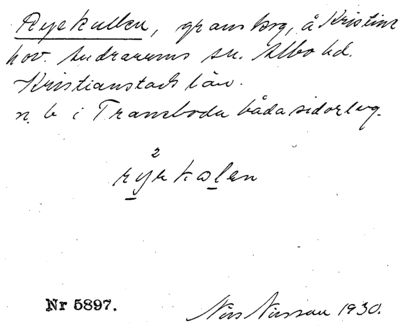 Ryrkullen, gransberg, å Kristine
hov. Andrarums sn. Albo hd.
Kristianstads län.
n. b i Tranboda båda sidor lvg.
2
ryrkolen
Nr 5897.
Nils Nilsson 1930.